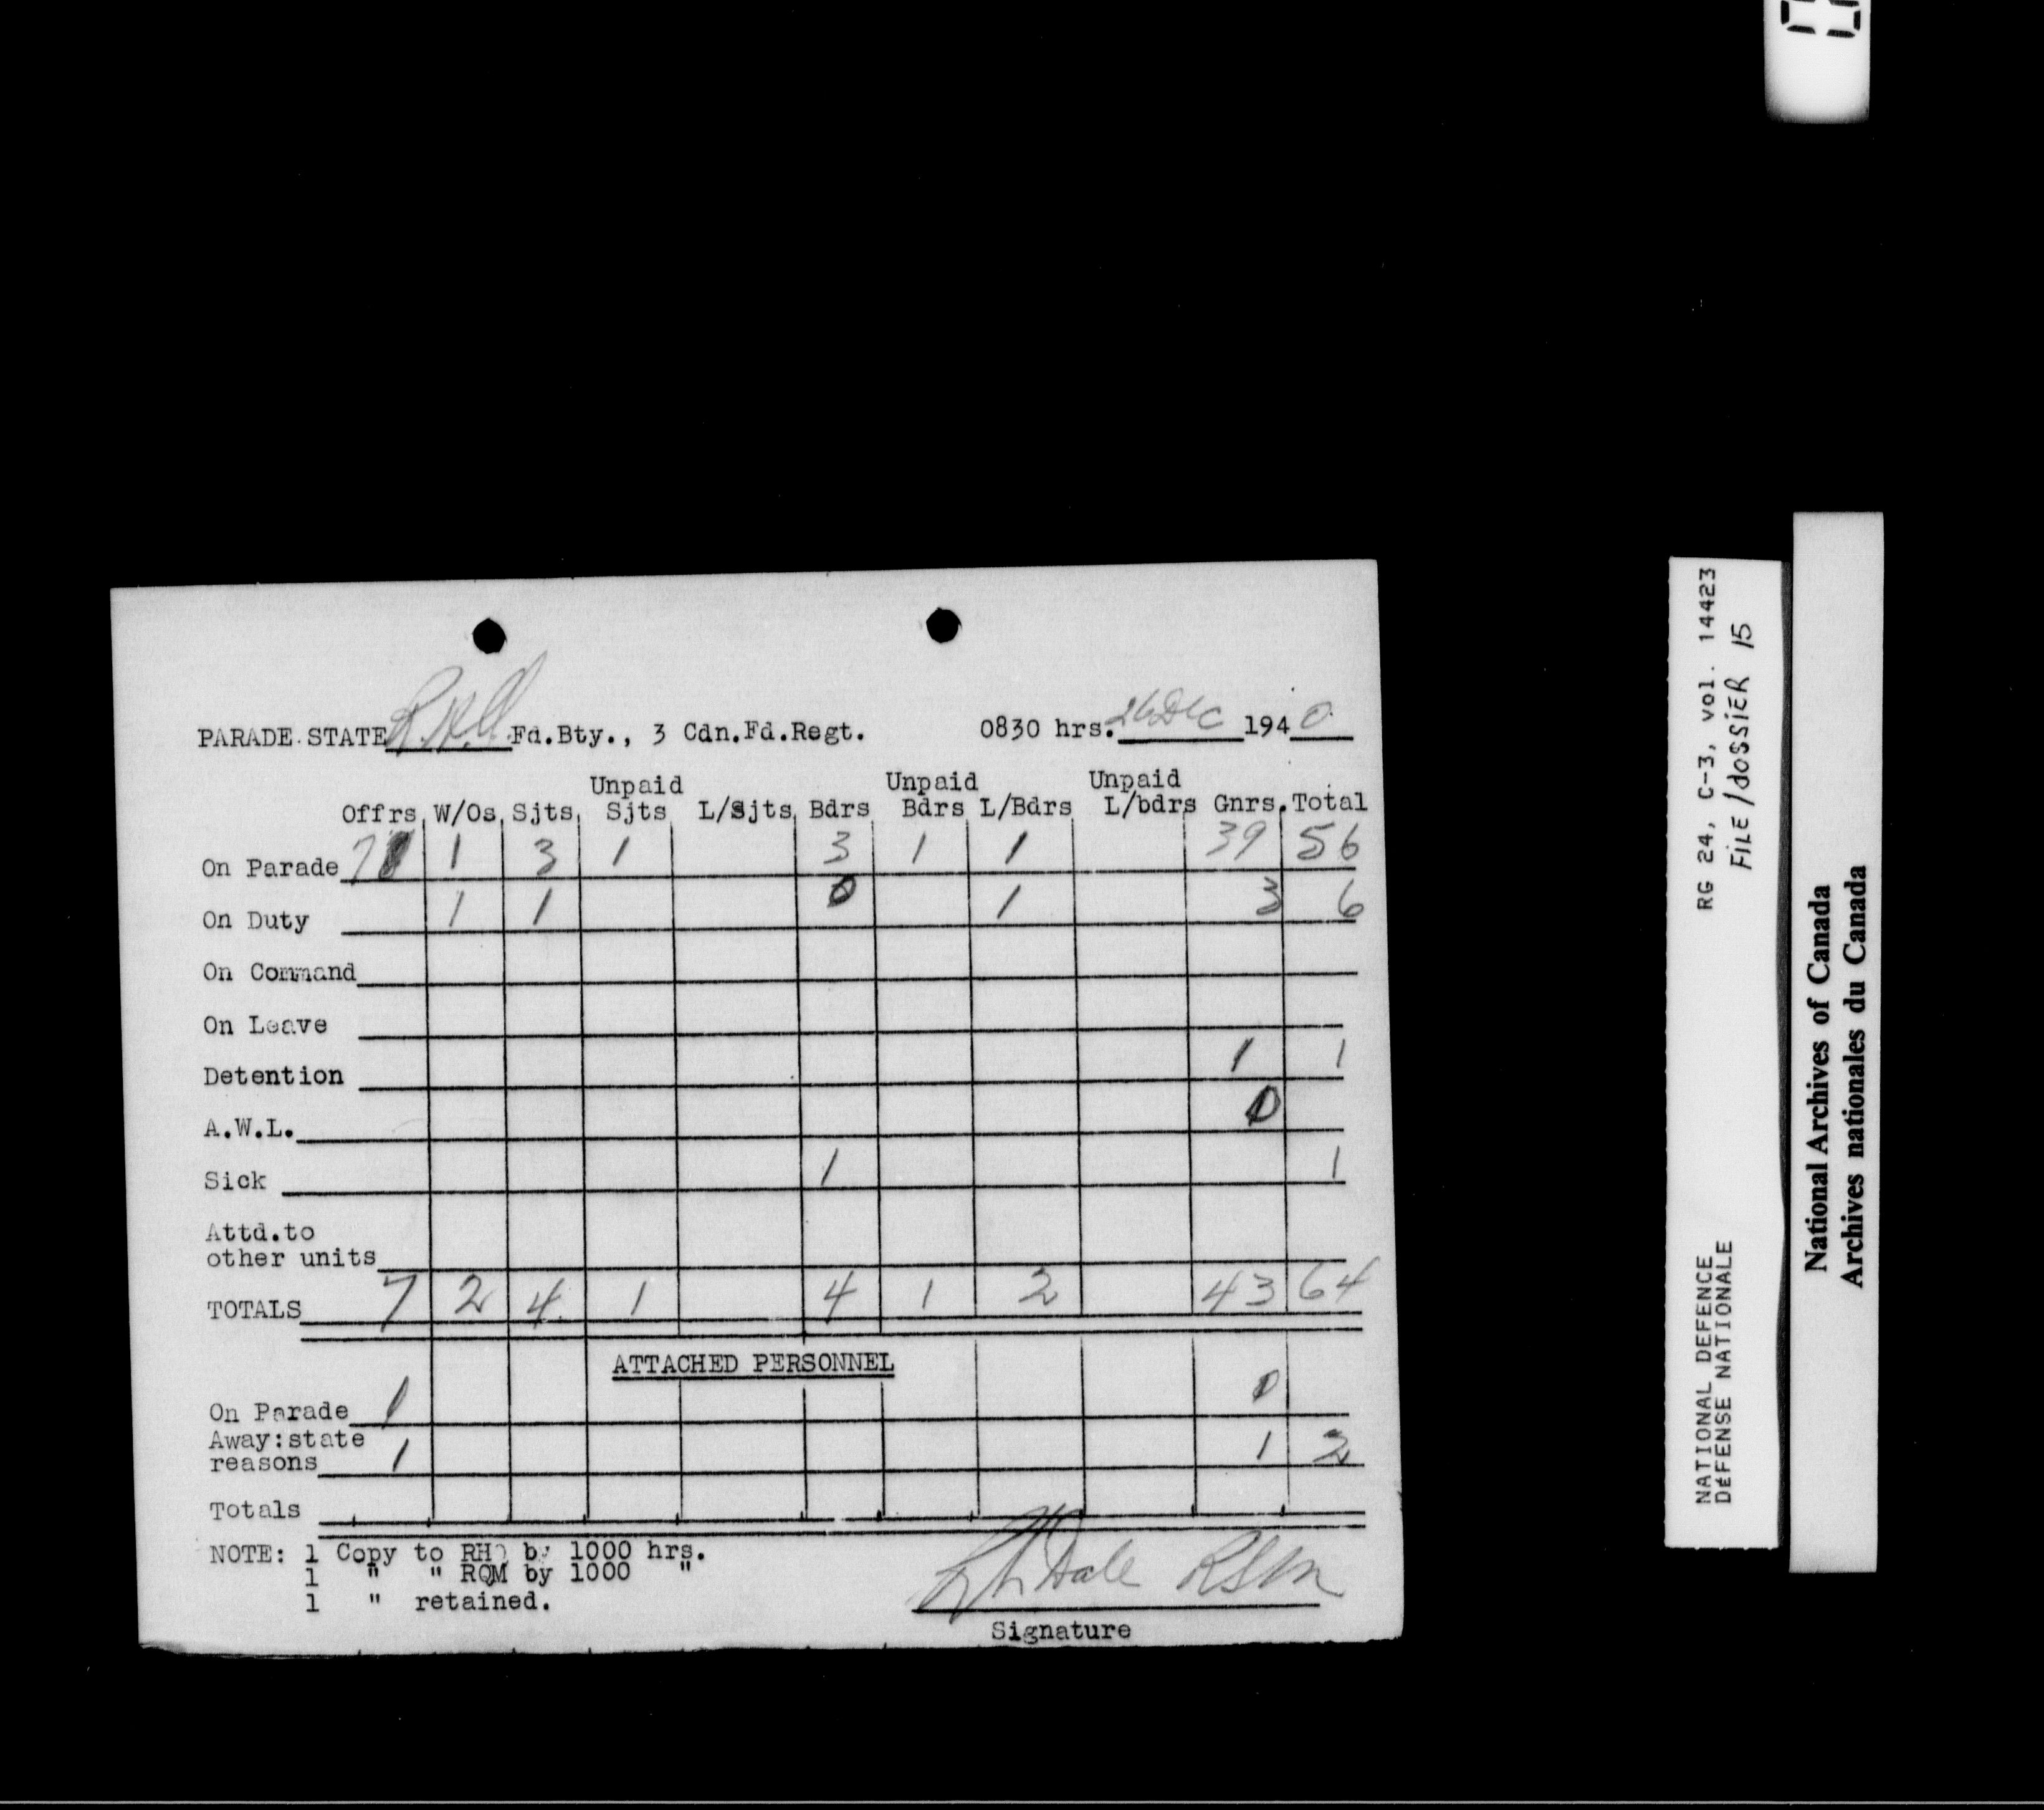 PARADE STATE R.H.Q. Fd.Bty., 3 Cdn.Fd.Regt. 0830 hrs. 26 Dec 1940
Unpaid Unpaid Unpaid
Offrs W/Os Sjts Sjts L/Sjts Bdrs Bdrs L/Bdrs L/bdrs Gnrs. Total
On Parade 7 1 3 1 3 1 1 39 56
On Duty 1 1 0 1 3 6
On Command
On Leave
Detention 1 1
A.W.L. 0
Sick 1 1
Attd.to
other units
TOTALS 7 2 4 1 4 1 2 43 64
ATTACHED PERSONNEL
On Parade 1 0
Away:state
reasons 1 1 2
Totals
NOTE: 1 Copy to RHQ by 1000 hrs.
1 " " RQM by 1000 "
1 " retained.
Dale RSM
Signature
RG 24, C-3, vol. 14423
FILE/dossier 15
NATIONAL DEFENCE
DéFENSE NATIONALE
National Archives of Canada
Archives nationales du Canada